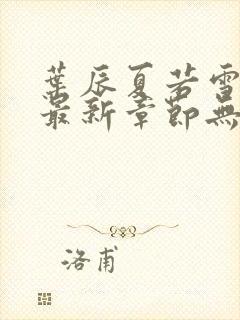 葉辰夏若雪
最新章節無
洛甫